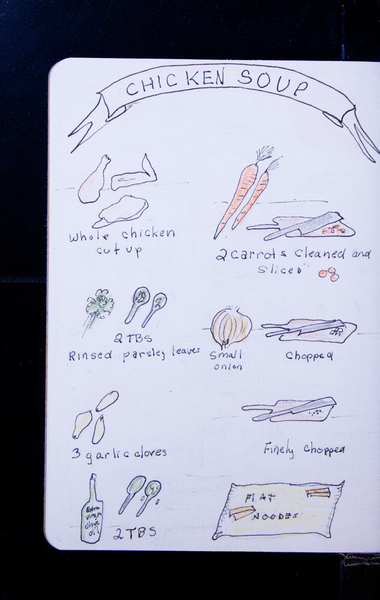 CHICKEN SOUP
Whole chicken
cut up
2 carrots cleaned and
Sliced
2 TBS
Rinsed parsley leaves
Small
onion
Chopped
3 garlic cloves
Finely Chopped
Extra
virgin
olive
oil
2 TBS
FLAT
NOODES